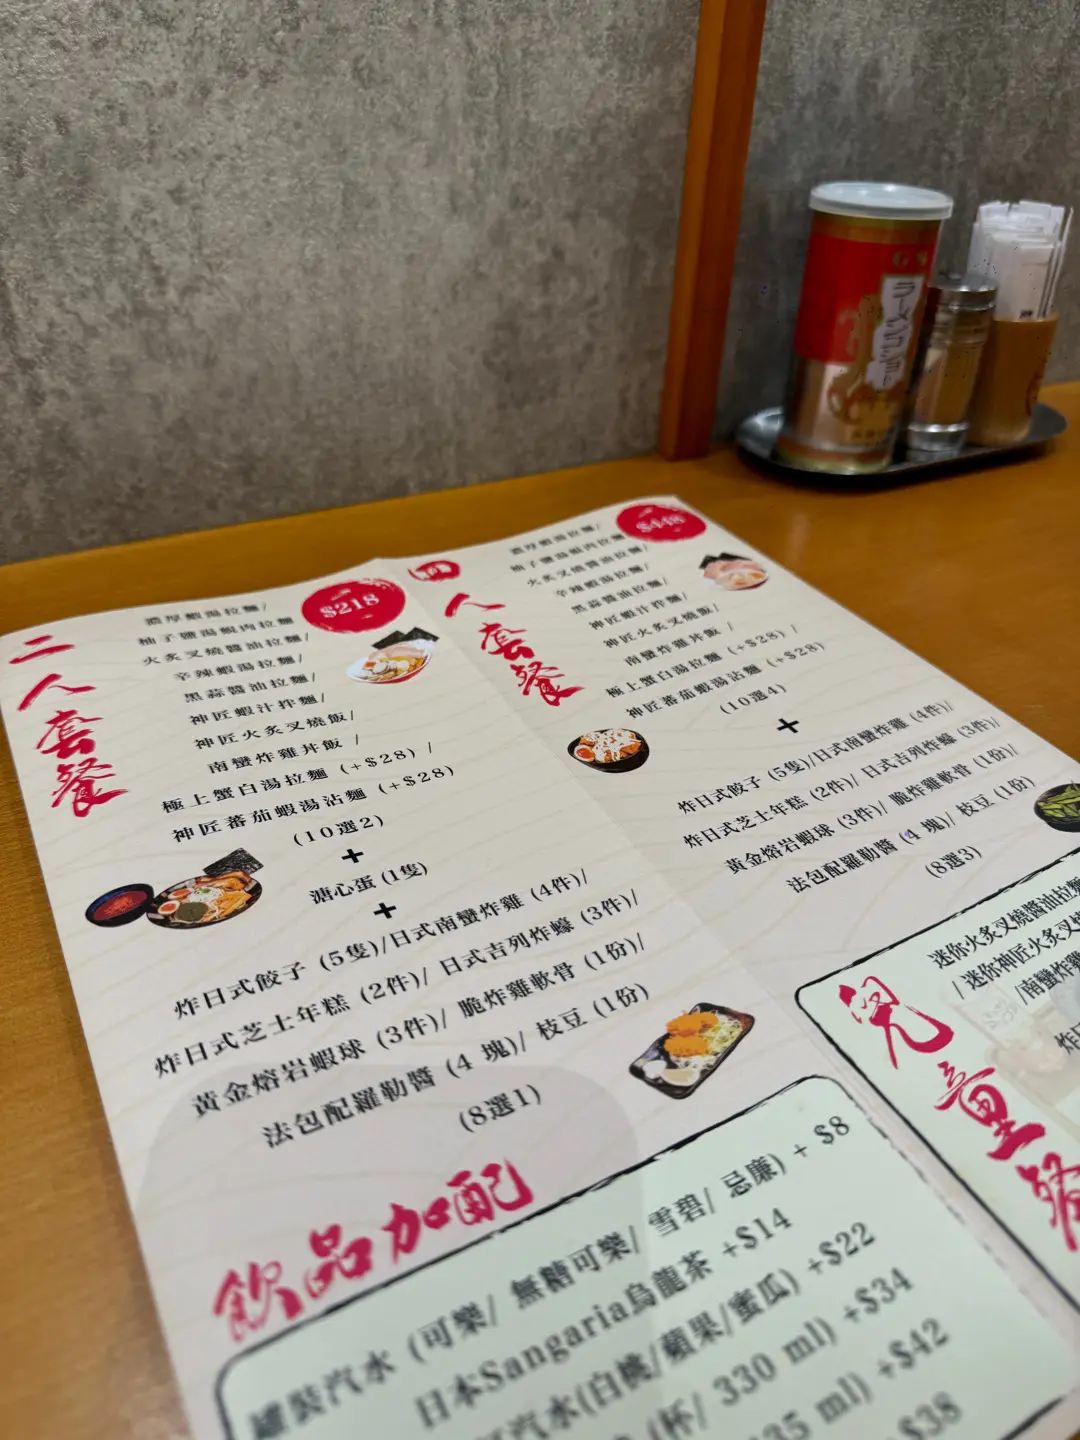 二人套餐
$218
濃厚蝦湯拉麵/
柚子鹽湯蜆肉拉麵
火炙叉燒醬油拉麵/
辛辣蝦湯拉麵/
黑蒜醬油拉麵/
神匠蝦汁拌麵/
神匠火炙叉燒飯/
南蠻炸雞丼飯 /
極上蟹白湯拉麵 (+$28) /
神匠蕃茄蝦湯沾麵 (+$28)
(10選2)
+
溏心蛋 (1隻)
+
炸日式餃子 (5隻)/日式南蠻炸雞 (4件)/
炸日式芝士年糕 (2件)/ 日式吉列炸蠔 (3件)/
黃金熔岩蝦球 (3件)/ 脆炸雞軟骨 (1份)/
法包配羅勒醬 (4 塊)/ 枝豆 (1份)
(8選1)
四人套餐
$448
濃厚蝦湯拉麵/
柚子鹽湯蜆肉拉麵
火炙叉燒醬油拉麵/
辛辣蝦湯拉麵/
黑蒜醬油拉麵/
神匠蝦汁拌麵/
神匠火炙叉燒飯/
南蠻炸雞丼飯 /
極上蟹白湯拉麵 (+$28) /
神匠蕃茄蝦湯沾麵 (+$28)
(10選4)
+
炸日式餃子 (5隻)/日式南蠻炸雞 (4件)/
炸日式芝士年糕 (2件)/ 日式吉列炸蠔 (3件)/
黃金熔岩蝦球 (3件)/ 脆炸雞軟骨 (1份)/
法包配羅勒醬 (4 塊)/ 枝豆 (1份)
(8選3)
兒童餐
迷你火炙叉燒醬油拉麵
/ 迷你神匠火炙叉燒
/南蠻炸雞
炸日
飲品加配
罐裝汽水 (可樂/ 無糖可樂/ 雪碧/ 忌廉) + $8
日本Sangaria烏龍茶 +$14
汽水(白桃/蘋果/蜜瓜) +$22
(杯/ 330 ml) +$34
35 ml) +$42
+$38